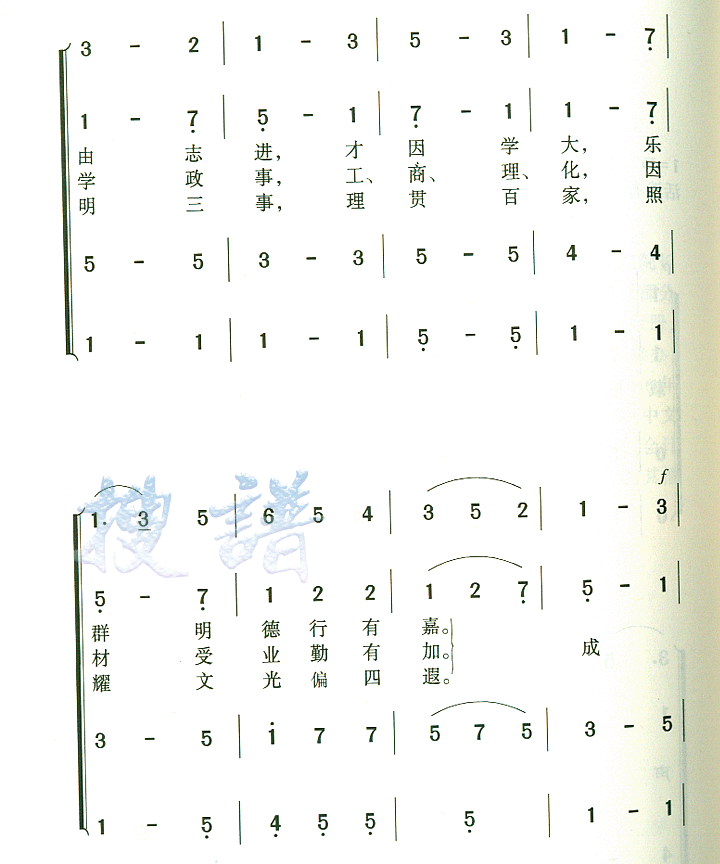 3 - 2 | 1 - 3 | 5 - 3 | 1 - 7̣ |
1 - 7̣ | 5̣ - 1 | 7̣ - 1 | 1 - 7̣ |
由 志 进, 才 因 学 大, 乐
学 政 事, 工、商、理、化, 因
明 三 事, 理 贯 百 家, 照
5 - 5 | 3 - 3 | 5 - 5 | 4 - 4 |
1 - 1 | 1 - 1 | 5̣ - 5̣ | 1 - 1 |
搜谱
f
1. 3 5 | 6 5 4 | 3 5 2 | 1 - 3 |
5̣ - 7̣ | 1 2 2 | 1 2 7̣ | 5̣ - 1 |
群 明 德 行 有 嘉。
材 受 业 勤 有 加。 成
耀 文 光 偏 四 遐。
3 - 5 | 1̇ 7 7 | 5 7 5 | 3 - 5 |
1 - 5̣ | 4̣ 5̣ 5̣ | 5̣ | 1 - 1 |